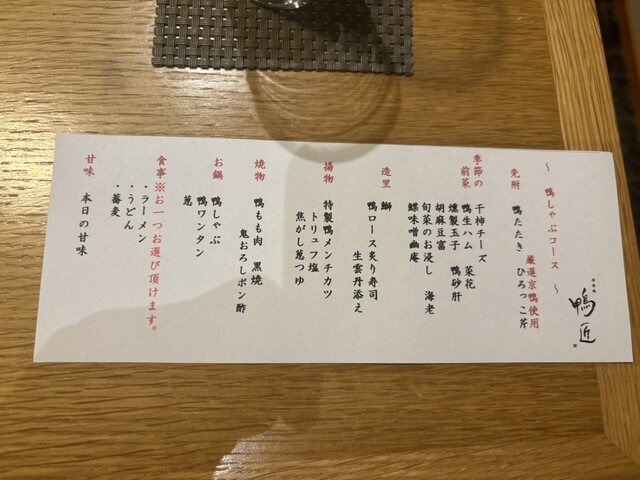 鴨匠
～ 鴨しゃぶコース ～
厳選京鴨使用
先附 鴨たたき ひろっこ芹
季節の前菜
干柿チーズ
鴨生ハム 菜花
燻製玉子 鴨砂肝
胡麻豆富
旬菜のお浸し 海老
蝶味噌幽庵
造里 鰤
鴨ロース炙り寿司
生雲丹添え
揚物 特製鴨メンチカツ
トリュフ塩
焦がし葱つゆ
焼物 鴨もも肉 黒焼
鬼おろしポン酢
お鍋 鴨しゃぶ
鴨ワンタン
葱
食事※お一つお選び頂けます。
・ラーメン
・うどん
・蕎麦
甘味 本日の甘味